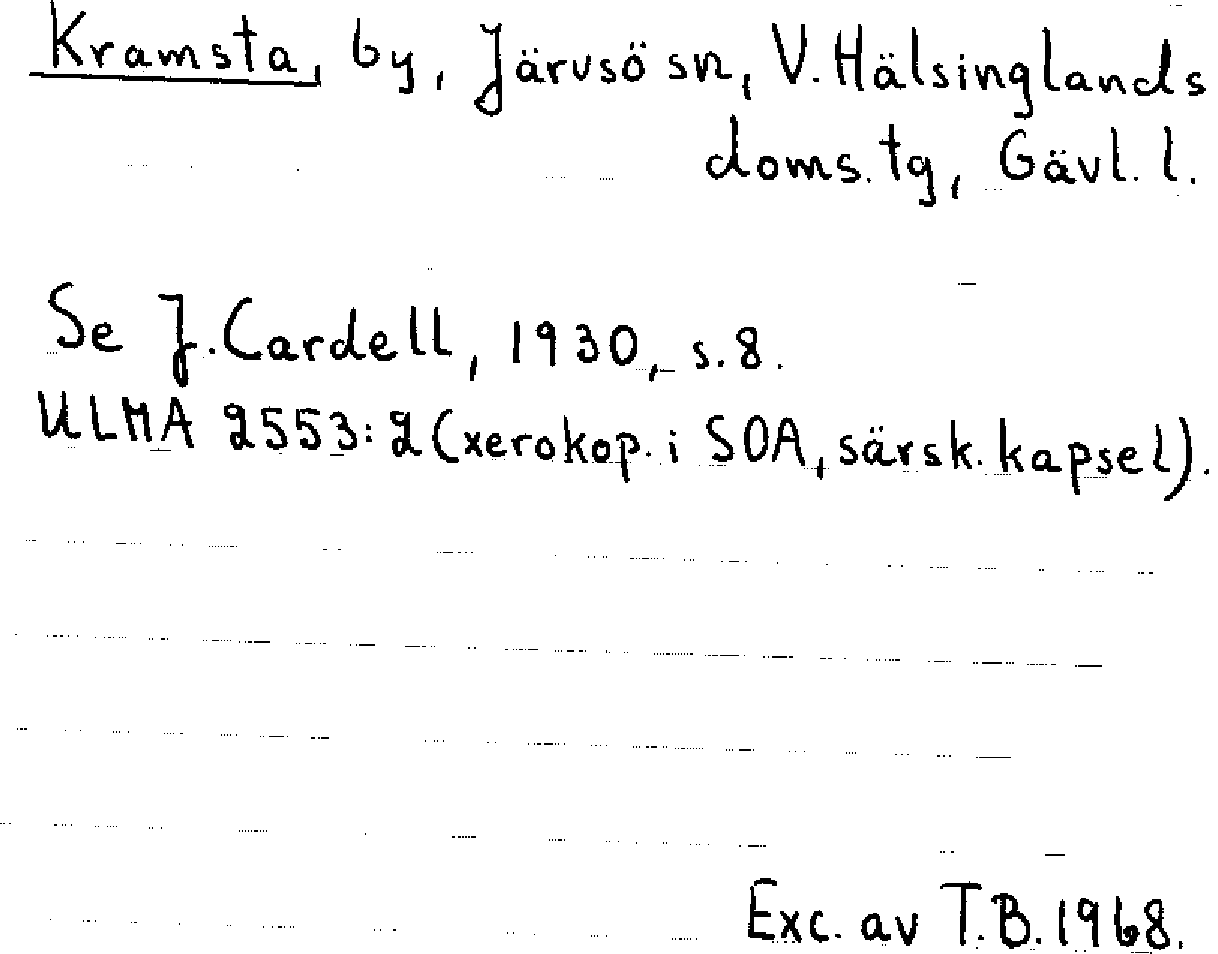 Kramsta, by, Järvsö sn, V. Hälsinglands
doms. tg, Gävl. l.
Se J. Cardell, 1930, s. 8.
ULMA 2553:2 (xerokop. i SOA, särsk. kapsel).
Exc. av T.B. 1968.